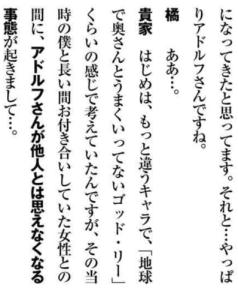 になってきたと思ってます。それと…やっぱ
りアドルフさんですね。
橘　ああ…。
貴家　はじめは、もっと違うキャラで、「地球
で奥さんとうまくいってないゴッド・リー」
くらいの感じで考えていたんですが、その当
時の僕と長い間お付き合いしていた女性との
間に、アドルフさんが他人とは思えなくなる
事態が起きまして…。